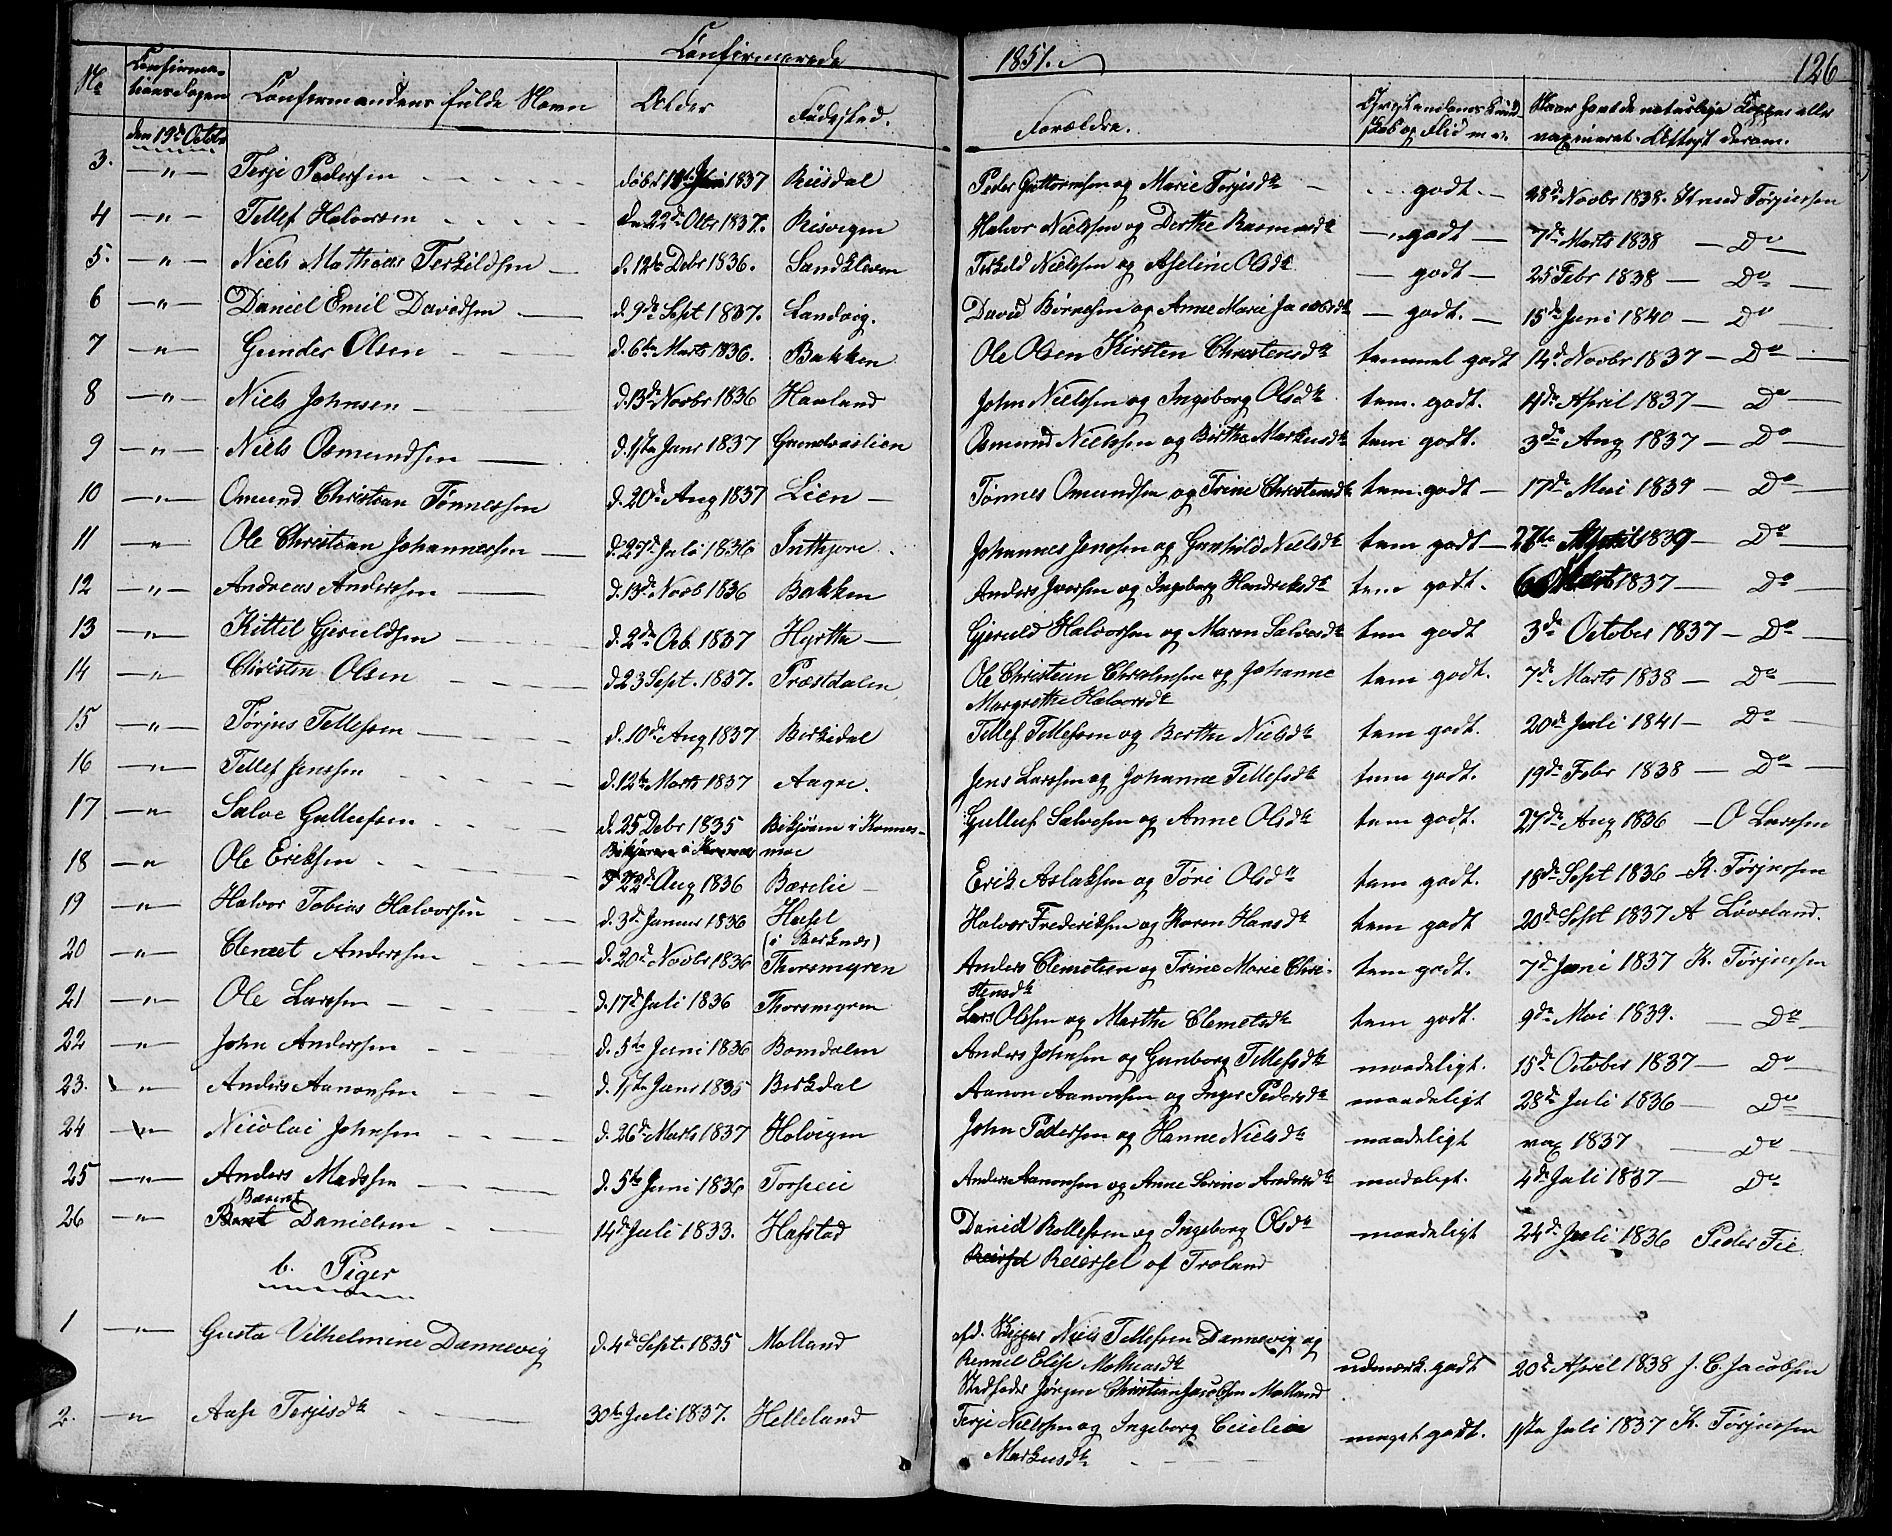 Confirmerede 1851. 126
No Confirmationsdagen Confirmandens fulde Navn Alder Fødested. Forældre. Christendomskundskab og Flid m. v. Naar havde naturlige Kopper eller vaxineret. Attest derom.
den 19de Octobr
3. —"— Terje Pedersen døbt 1837 Riisdal Peder Guttormsen og Marie Terjesdtr godt 28de Novbr 1838. Knud Tørjusen
4 —"— Tellef Halvorsen d. 22de Octbr 1837. Risvigen Halvor Nielssen og Dorthe Rasmusdtr godt 7de Marts 1838 — Do
5. —"— Niels Mathias Terkildsen d. 12te Debr 1836. Sandkleven Terkild Nielssen og Aseline Olsdtr godt 25 Febr 1838 — Do
6 —"— Daniel Emil Davidsen d. 9de Sept 1837. Landvig. David Børresen og Anne Marie Jacobsdtr godt. 15de Juni 1840 — Do
7 —"— Gunder Olsen d. 6te Marts 1836. Bakken Ole Olsen Kirsten Christensdtr temmel godt 14de Novbr 1837 — Do
8 —"— Niels Johnsen d. 13de Novbr 1836 Haaland John Nielssen og Ingeborg Olsdtr tem. godt. 4de April 1837 — Do
9 —"— Niels Osmundsen d. 1ste Janr 1837 Osmund Nielssen og Birthe Markusdtr tem godt. 3de Aug 1837 — Do
10 —"— Omund Christian Tønnessen d. 20de Aug 1837 Lien Tønnes Omundsen og Trine Christensdtr tem. godt 17de Mai 1839 — Do
11 —"— Ole Christian Johannessen d. 27de Juli 1836 Inthjore Johannes Jenssen og Gunhild Nielsdtr tem godt 27de April 1839 — Do
12 —"— Andreas Anderssen d. 13de Novb 1836 Bakken Anders Iversen og Ingeborg Hendriksdtr tem godt. 6 1837 — Do
13 —"— Kittil Gjeruldsen d. 2de Ocb. 1837 Hyrtte Gjeruld Halvorsen og Maren Salvesdtr tem godt 3de October 1837 — Do
14 —"— Christen Olsen d 23 Sept. 1837. Præstdalen Ole Christian Christensen og Johanne tem godt. 7de Marts 1838 — Do
Margrethe Halvorsdtr
15 —"— Tørjus Tellefsen d. 10de Aug 1837 Birkidal Tellef Tellefsen og Berthe Nielsdtr tem godt. 20de Juli 1841 — Do
16 —"— Tellef Jenssen d. 12te Marts 1837 Aagre. Jens Larssen og Johanne Tellefsdtr tem godt. 19de Febr 1838 — Do
17 —"— Salve Gullufsen d. 25 Debr 1835 Bikjøren i Konnes- Gulluf Salvesen og Anne Olsdtr tem godt. 27de Aug 1836 — O Larssen
moe
18 —"— Ole Eriksen d 22de Aug 1836 Bærelie Erik Aslaksen og Tøri Olsdtr tem godt. 18de Sept 1836 — K. Tørjussen
19 —"— Halvor Tobias Halvorsen d. 3de Januar 1836 Hasel Halvor Frederiksen og Karen Hansdtr tem godt 20de Sept 1837 A Løvland.
20 —"— Clemet Anderssen d. 20de Novbr 1836 Thorsmyren Anders Clemetsen og Trine Marie Chri- tem godt. 7de Juni 1837 K. Tørjussen
stensdtr
21 —"— Ole Larssen d. 17de Juli 1836 Thorsmyren Lars Olssen og Marthe Clemetsdtr tem godt. 9de Mai 1839. — Do
22 —"— John Anderssen d. 5te Juni 1836 Bomdalen Anders Johnsen og Gunborg Tellefsdtr maadeligt. 15de October 1837 — Do
23. —"— Anders Aanonsen d. 1ste Janr 1835 Birkdal Aanon Aanonsen og Inger Pedersdtr maadeligt 28de Juli 1836 — Do
24 —"— Nicolai Johnsen d. 26de Marts 1837 Holvigen John Pedersen og Hanne Nielsdtr maadeligt vax 1837 — Do
25 —"— Anders Madssen d. 5te Juni 1836 Anders Aanonsen og Anne Serine Andersdtr madeligt. 4de Juli 1837 — Do
26 —"— Bærent Danielsen 14de Juli 1833. Hafstad Daniel Rollefsen og Ingeborg Olsdtr maadeligt 24de Juli 1836 Peder Fie
Reiersel af Troland
b. Piger
1 —"— Gusta Vilhelmine Dannevig d. 4de Sept. 1835 Molland afd. Skipper Niels Tellefsen Dannevig og
Elise Mathiasdtr udmærk. godt 20de April 1838 J. C. Jacobsen
Stedfader Jørgen Christian Jacobsen Molland
2. —"— Aase Terjesdtr 30te Juli 1837. Helleland Terje Nielssen og Ingeborg Cecilia meget godt. 1ste Juli 1837 K. Tørjussen
Markusdtr